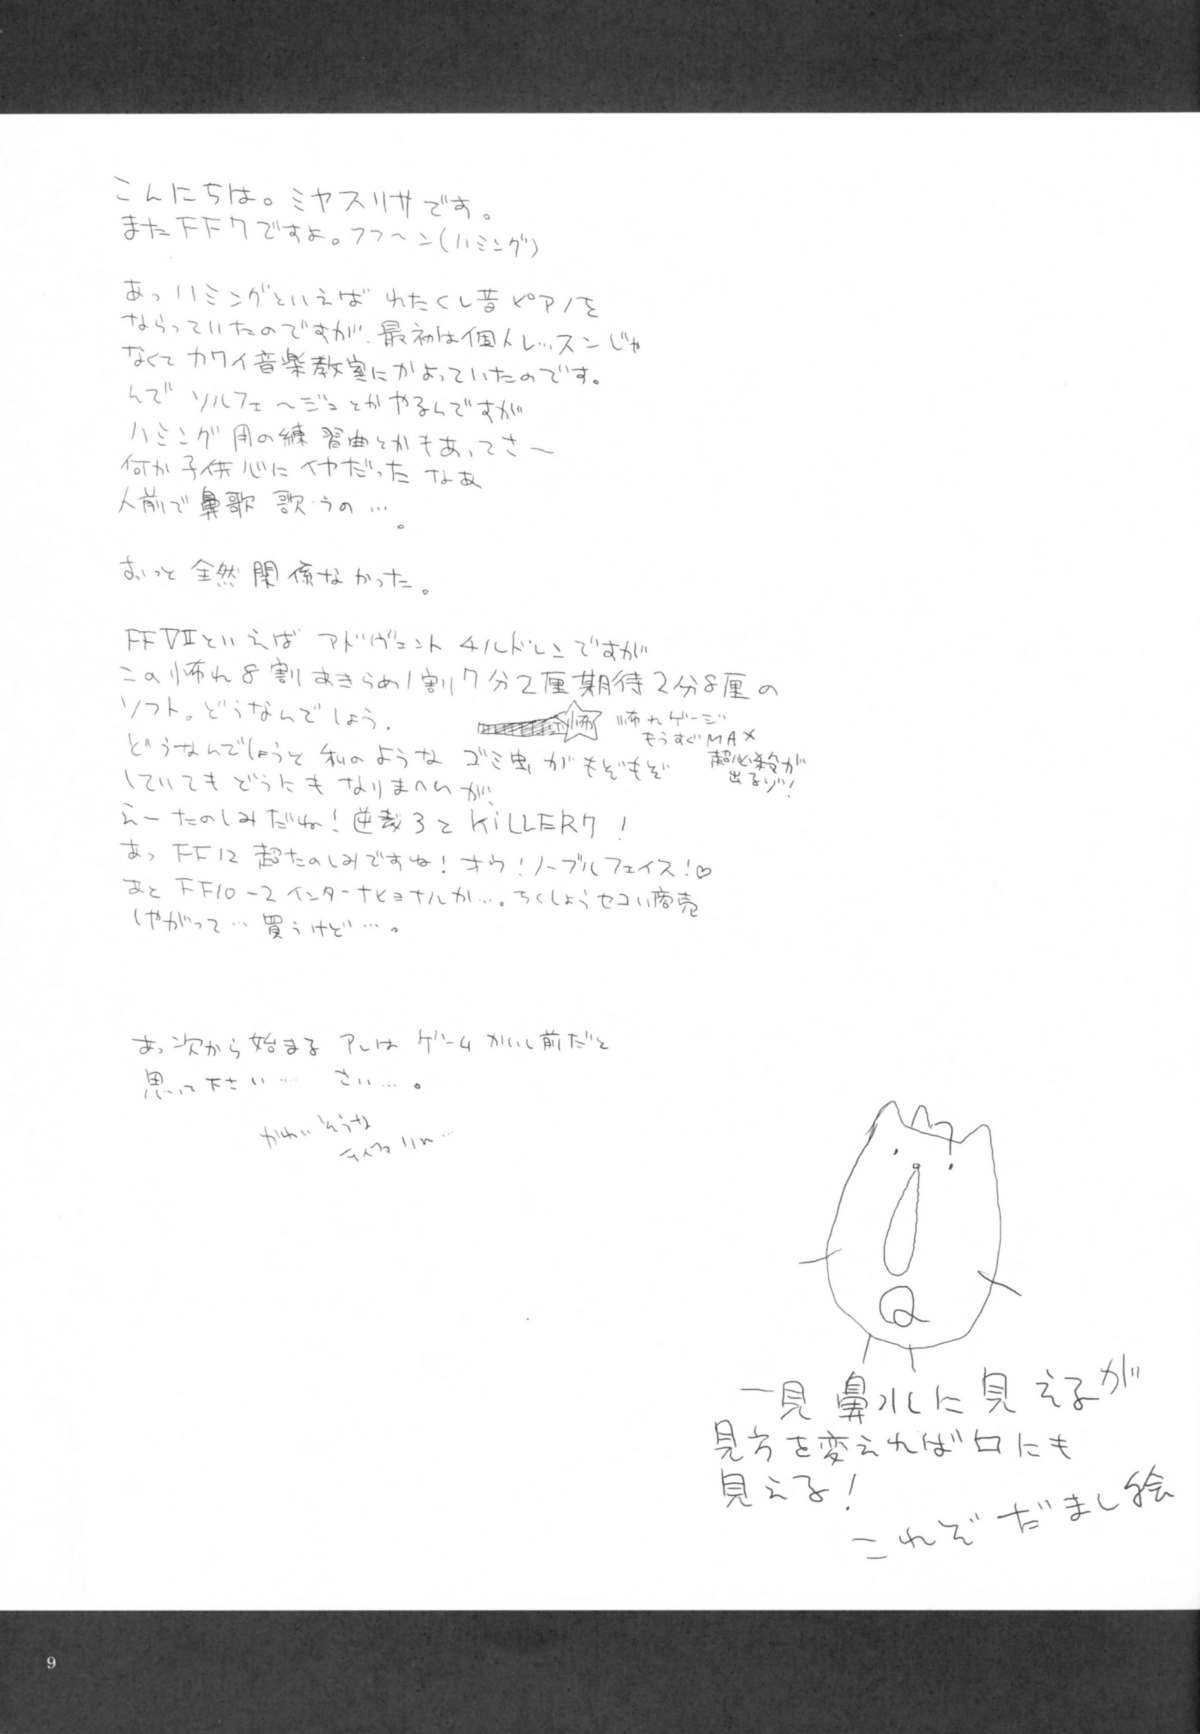 こんにちは。ミヤスリサです。
またFF7ですよ。フフ〜ン(ハミング)
あっハミングといえば わたくし昔ピアノを
ならっていたのですが、最初は個人レッスンじゃ
なくて カワイ音楽教室にかよっていたのです。
んで ソルフェ〜ジュとかやるんですが
ハミング用の練習曲とかもあってさ〜
何か子供心にイヤだったなあ
人前で鼻歌歌うの…。
おっと全然関係なかった。
FFⅦといえば アドヴェントチルドレンですが
この怖れ8割あきらめ1割7分2厘期待2分8厘の
ソフト。どうなんでしょう。
怖
怖れゲージ
もうすぐMAX
超必殺が
出るゾ!
どうなんでしょうと私のようなゴミ虫がもぞもぞ
していてもどうにもなりまへんが、
えーたのしみだね!逆裁3とKiLLER7!
あっFF12超たのしみですね!オウ!ノーブルフェイス!♡
あとFF10-2インターナショナルか…。ちくしょうセコい商売
しやがって…買うけど…。
あっ次から始まるアレはゲームかいし前だと
思って下さい… さい…。
かわいそうな
ティファ
7
Q
一見鼻水に見えるが
見方を変えれば口にも
見える!
これぞだまし絵
9